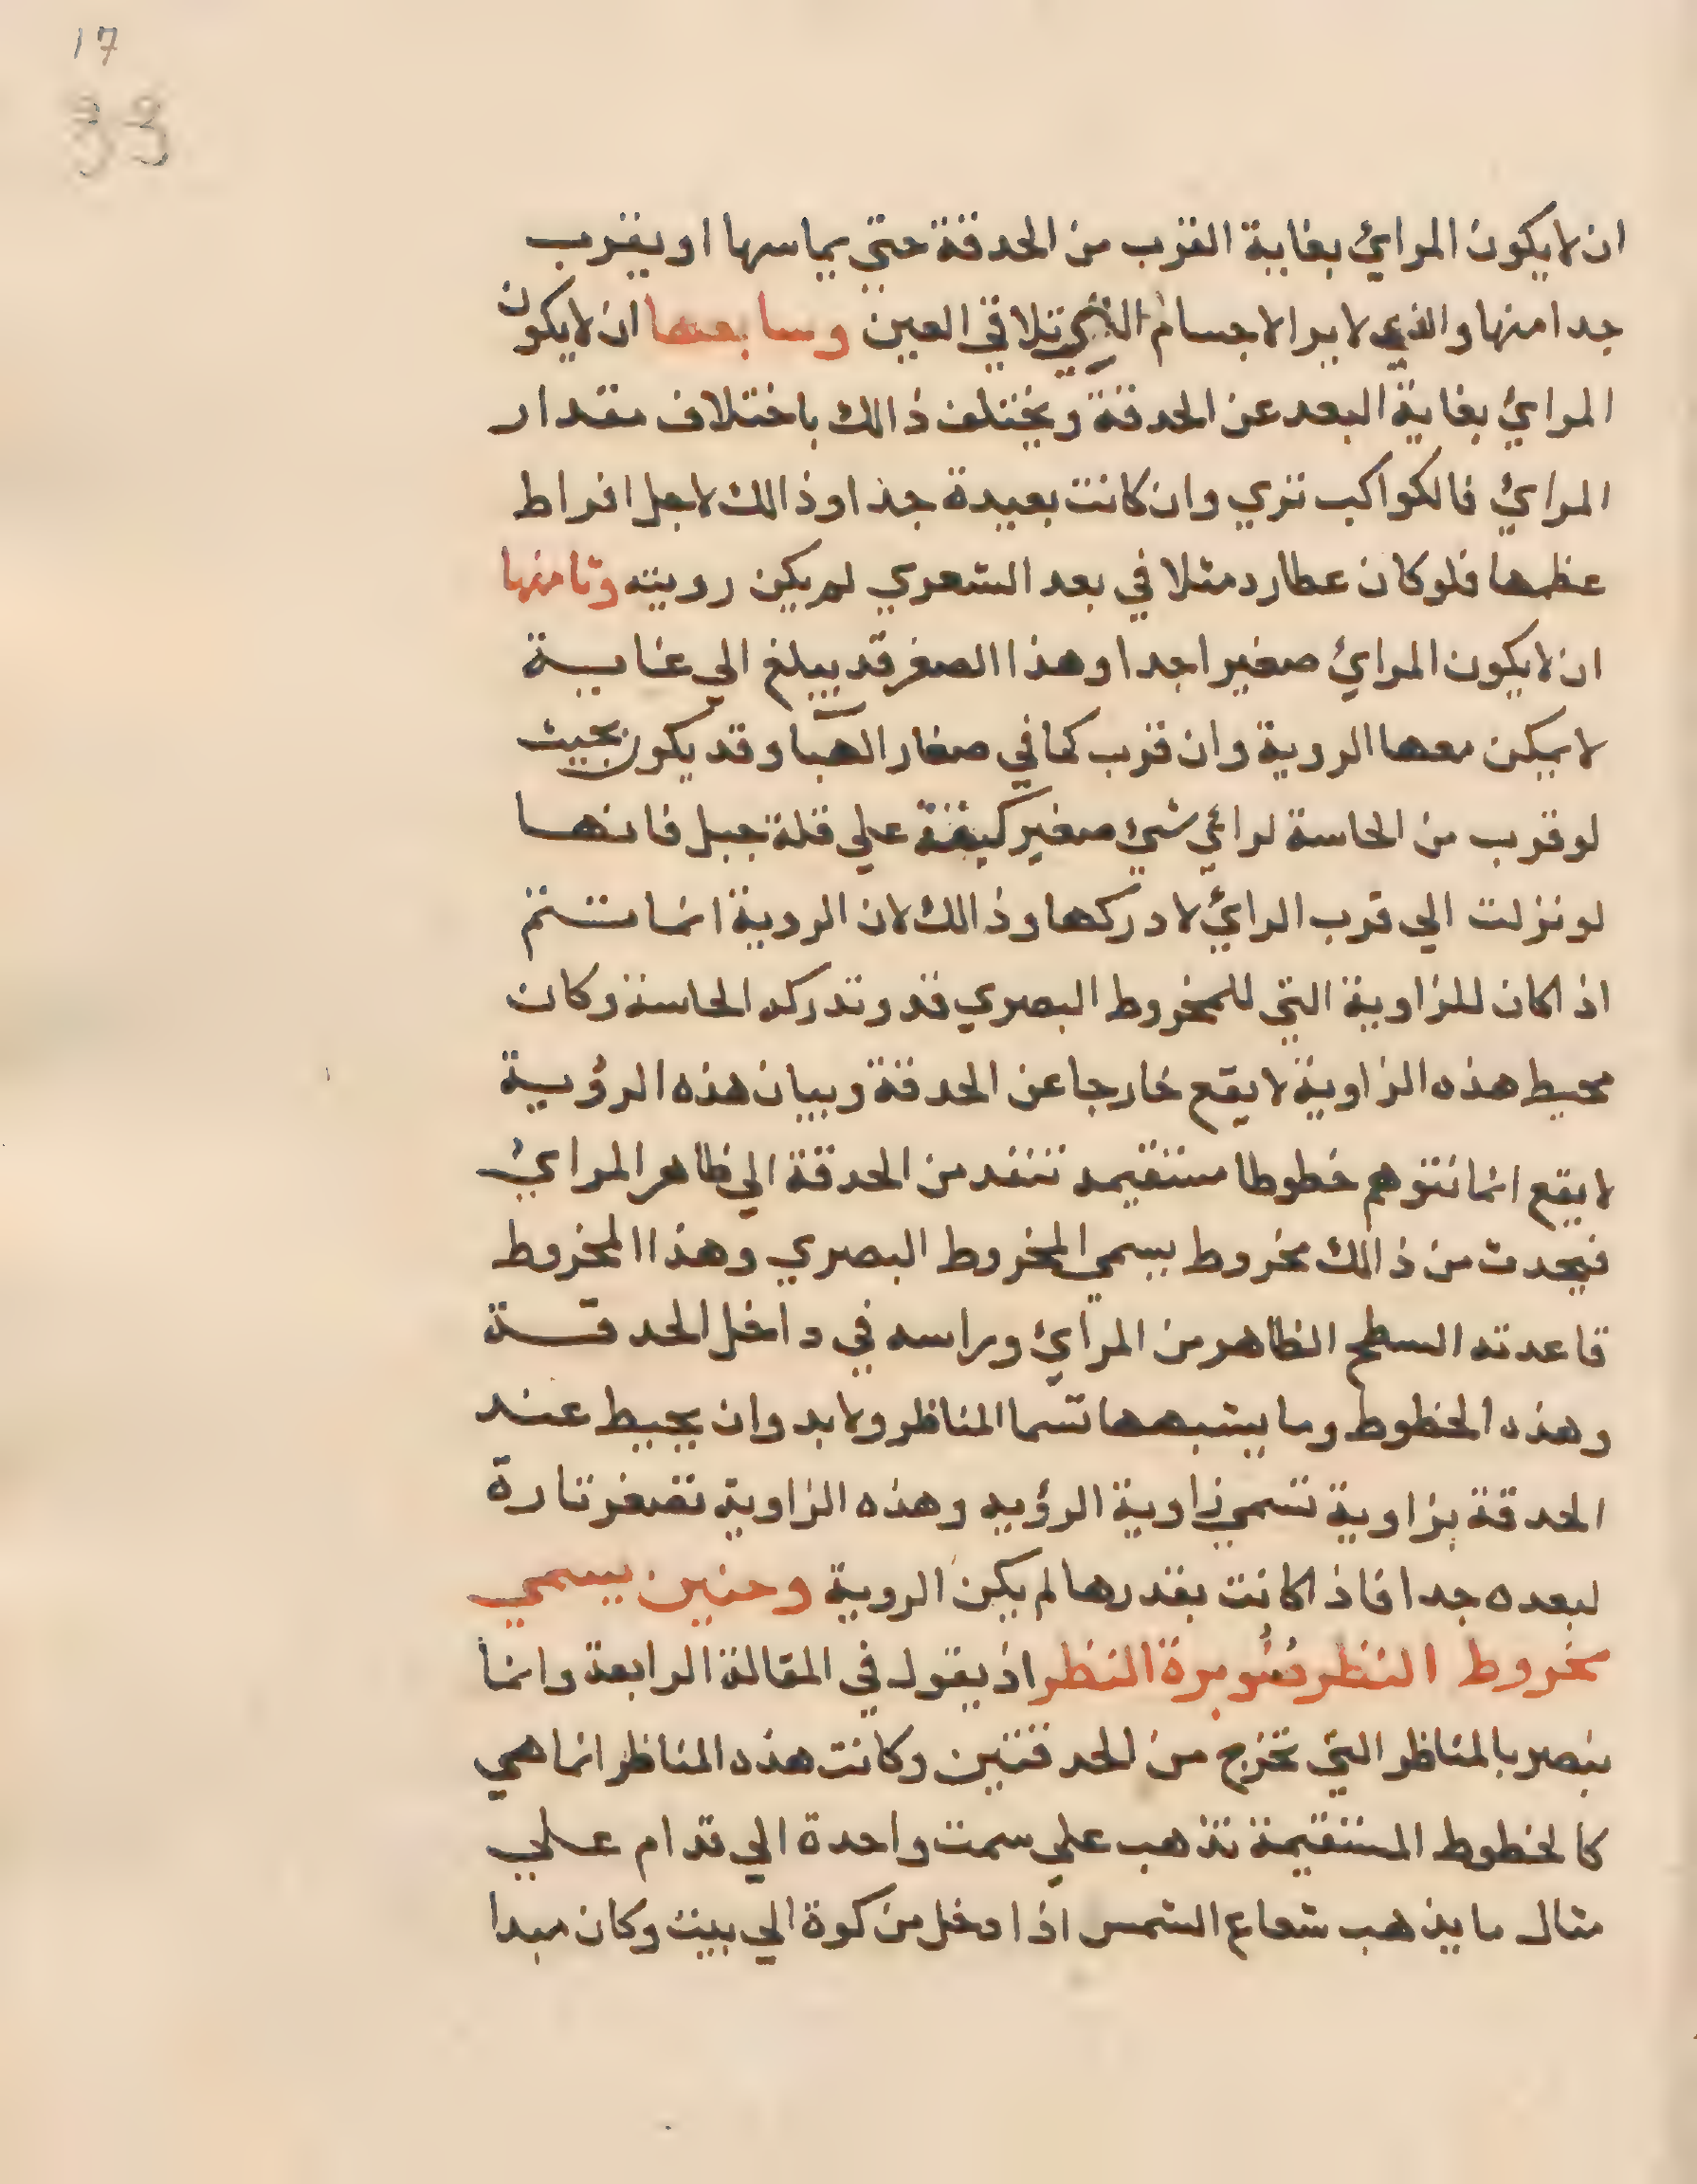 17
33
ان لا يكون المرايئ بغاية القرب من الحدقة حتي يماسها او يقرب
جدا منها والذي لا يرا الاجسام التي تلاقي العين وسابعها ان لا يكون
المرايئ بغاية البعد عن الحدقة ويختلف ذالك باختلاف مقدار
المرايئ فالكواكب تري وان كانت بعيدة جدا وذالك لاجل افراط
عظمها فلو كان عطارد مثلا في بعد الشعري لم يكن رويته وثامنها
ان لا يكون المرايئ صغيرا جدا وهذا الصغر قد يبلغ الي غاية
لا يمكن معها الروية وان قرب كما في صغار الهبا وقد يكون بحيث
لو قرب من الحاسة لراءي شيئ صغير كبقة علي قلة جبل فانها
لو نزلت الي قرب الرايئ لادركها وذالك لان الروية انما تتم
اذا كان للزاوية التي للمخروط البصري قدر تدركه الحاسة وكان
محيط هذه الزاوية لا يقع خارجا عن الحدقة وبيان هذه الرؤية
لا يقع انما نتوهم خطوطا مستقيمه تنفد من الحدقة الي ظاهر المرايئ
فيحدث من ذالك مخروط يسمي المخروط البصري وهذا المخروط
قاعدته السطح الظاهر من المرايئ وراسه في داخل الحدقة
وهذه الخطوط وما يشبهها تسما المناظر ولا بد وان يحيط عند
الحدقة بزاوية تسمي زاوية الرؤيه وهذه الزاوية تصغر تارة
لبعده جدا فاذا كانت بقدرها لم يكن الروية وحنين يسمي
مخروط النظر صنوبرة النظر اذ يقول في المقالة الرابعة وانما
نبصر بالمناظر التي تخرج من الحدقتين وكانت هذه المناظر انما هي
كالخطوط المستقيمة تذهب علي سمت واحدة الي قدام علي
مثال ما يذهب شعاع الشمس اذا دخل من كوة الي بيت وكان مبدا